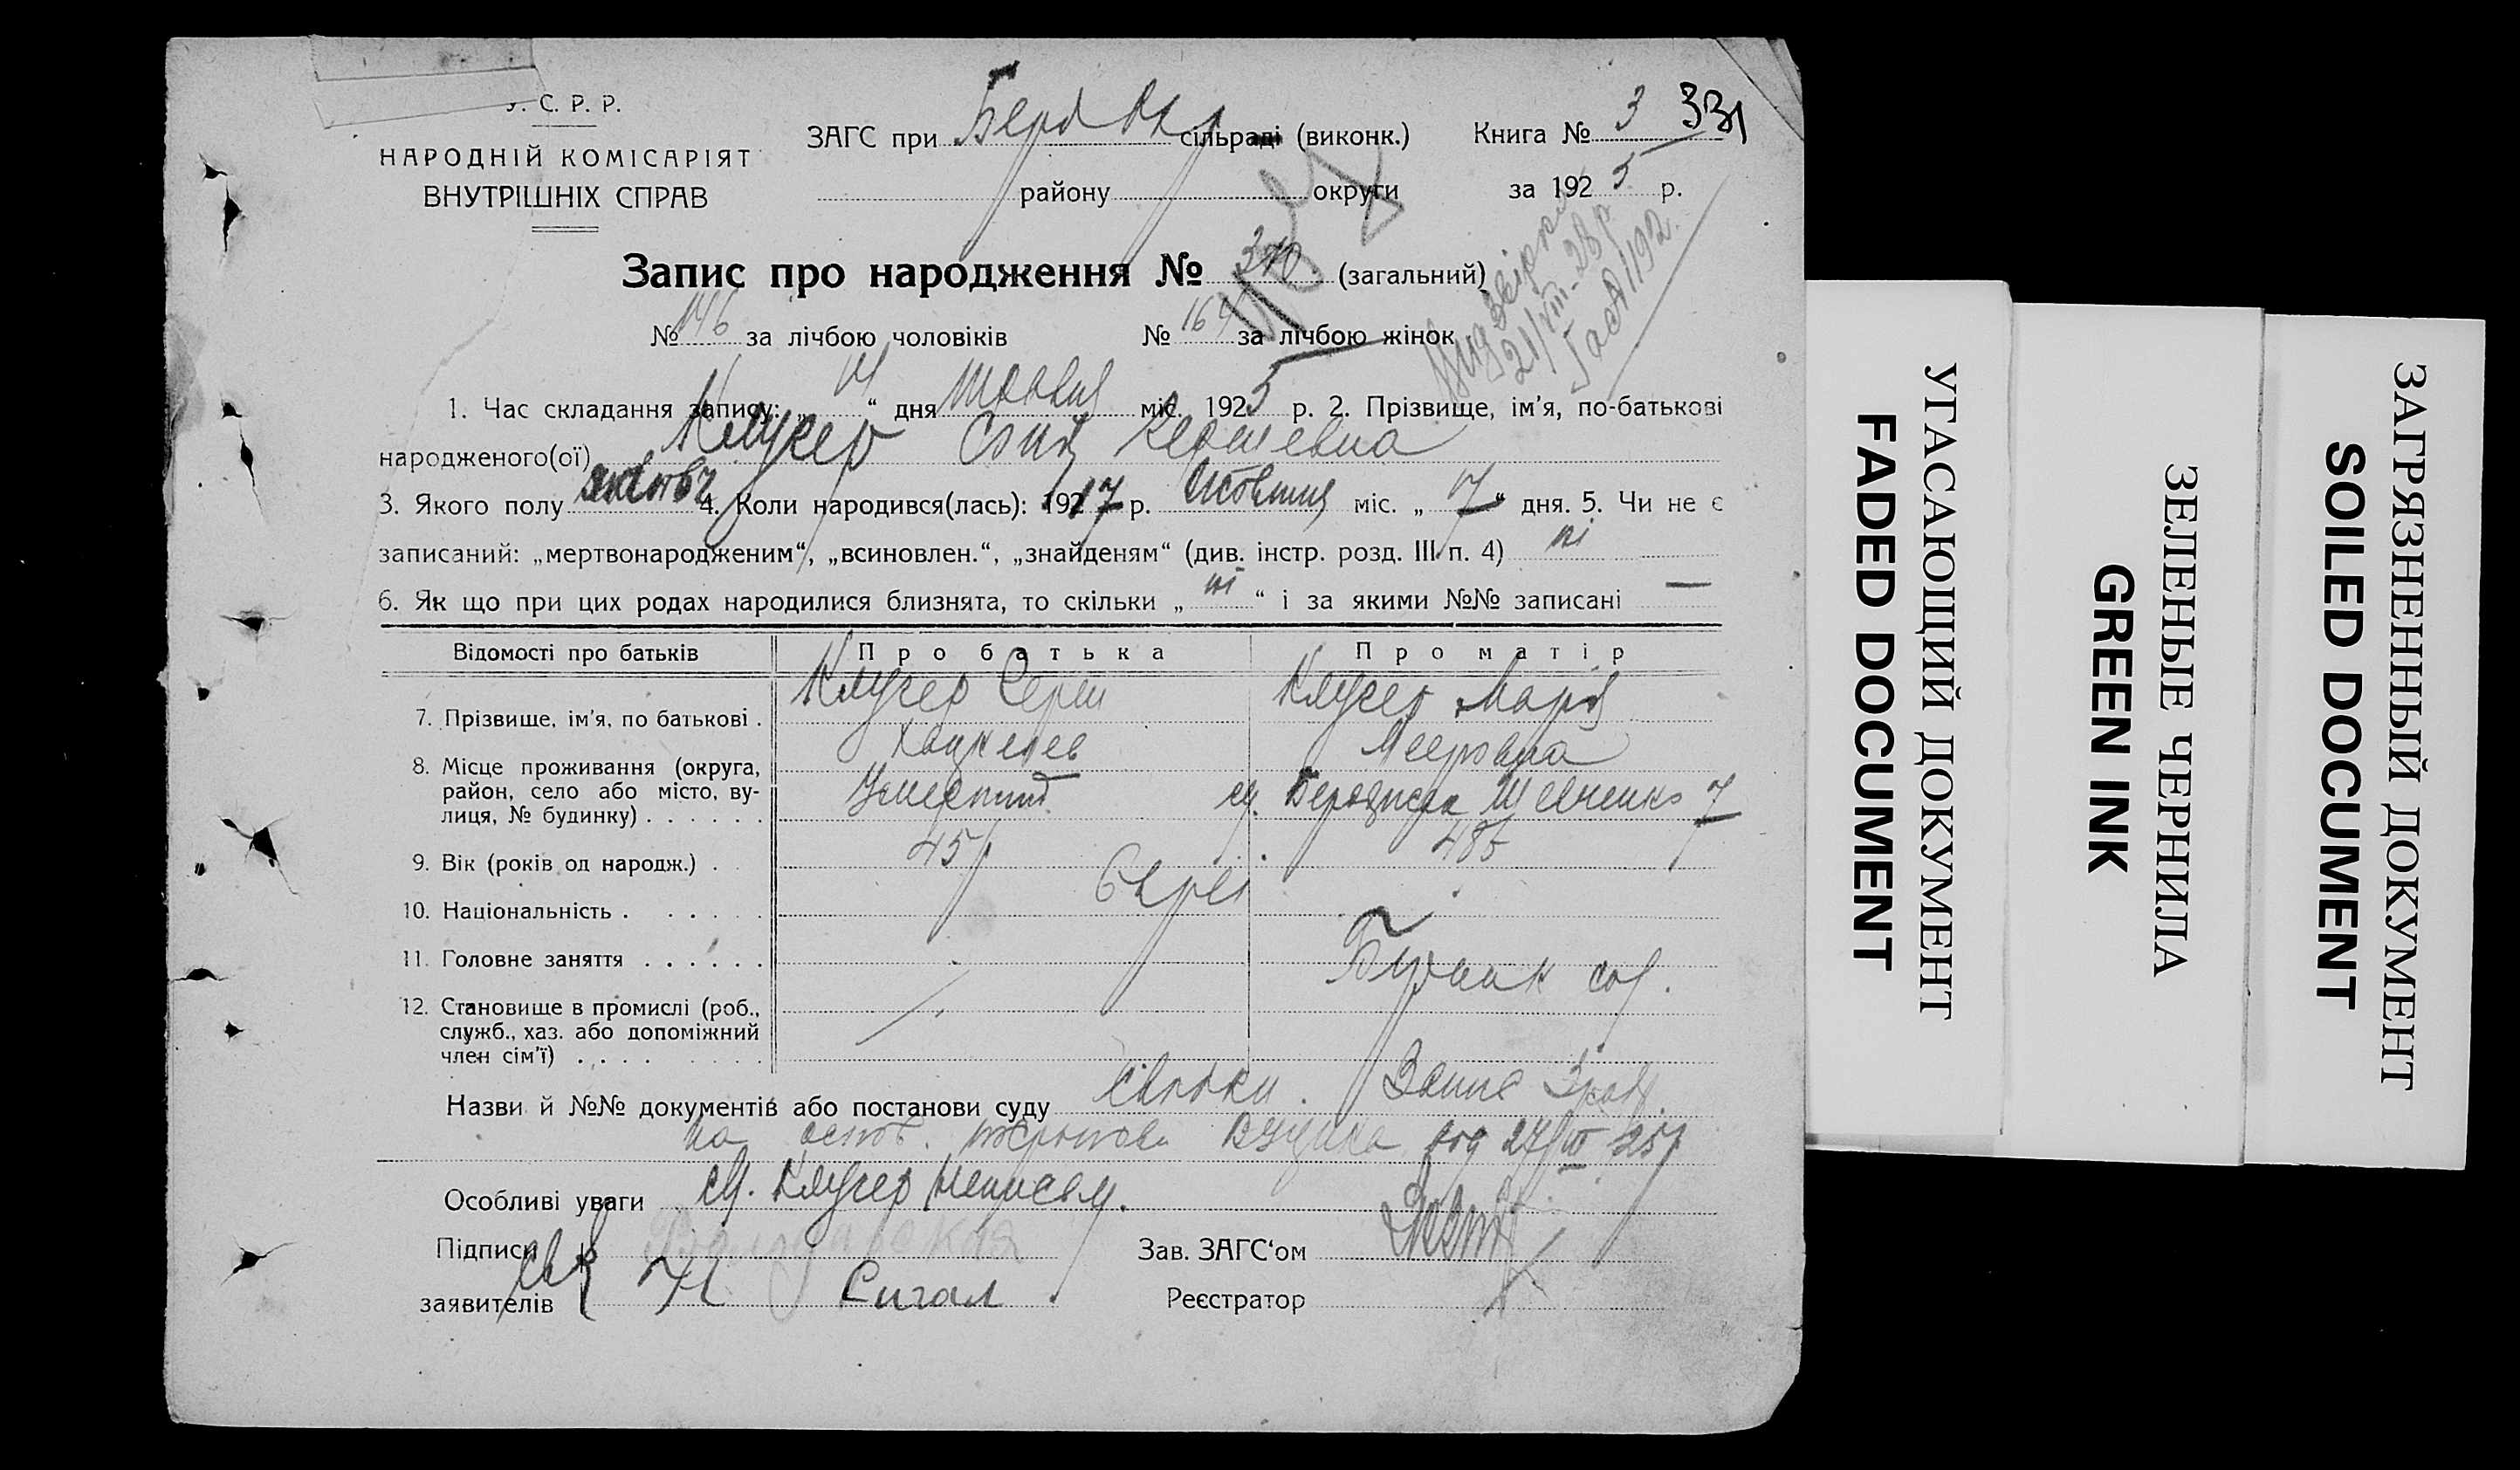 У. С. Р. Р.
НАРОДНІЙ КОМІСАРІЯТ
ВНУТРІШНІХ СПРАВ
ЗАГС при Берд Окр сільради (виконк.) Книга № 3 331
району округи за 1925 р.
Запис про народження № 310 (загальний)
№ 146 за лічбою чоловіків № 164 за лічбою жінок
1. Час складання запису: „ 14 “ дня травня міс. 1925 р. 2. Прізвище, ім'я, по-батькові
народженого(ої) Клугер Соня Гершевна
3. Якого полу 4. Коли народився(лась): 1917 р. Жовтня міс. „ 17 “ дня. 5. Чи не є
записаний: „мертвонародженим“, „всиновлен.“, „знайденям“ (див. інстр. розд. III п. 4) ні
6. Як що при цих родах народилися близнята, то скільки „ ні “ і за якими №№ записані —
Відомості про батьків Про батька Про матір
7. Прізвище, ім'я, по батькові . Клугер Герш Клугер Марія
Мееровна
8. Місце проживання (округа, район, село або місто, вулиця, № будинку) . . . . . . м. Бердичев Шевченко 7
9. Вік (років од народж.) . 45 р. 48
10. Національність . . . . . . Євреї
11. Головне заняття . . . . . .
12. Становище в промислі (роб., служб., хаз. або допоміжний член сім'ї) . . . . . . . .
Назви й №№ документів або постанови суду
на основ. од 27/III 25р
Особливі уваги Клугер неписьм.
Підписи
заявителів Сигал
Зав. ЗАГС'ом
Реєстратор
УГАСАЮЩИЙ ДОКУМЕНТ
FADED DOCUMENT
ЗЕЛЕНЫЕ ЧЕРНИЛА
GREEN INK
ЗАГРЯЗНЕННЫЙ ДОКУМЕНТ
SOILED DOCUMENT